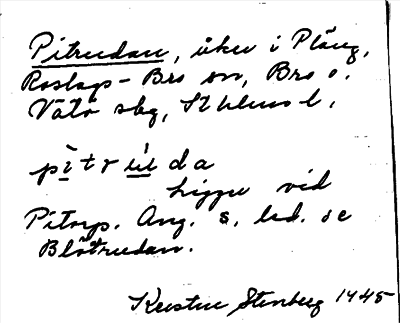 Pitrudan, åker i Pläng,
Roslags-Bro sn, Bro o.
Vätö skg, Sthlms l.
pitrúda
ligger vid
Pitorp. Ang. s. led. se
Blötrudan.
Kerstin Stenberg 1945